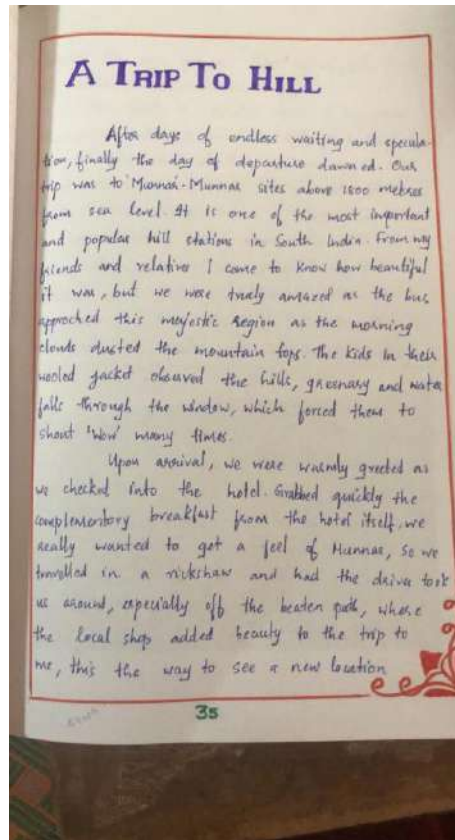 A TRIP TO HILL
After days of endless waiting and specula-
tion, finally the day of departure dawned. Our
trip was to Munnar. Munnar sites above 1600 metres
from sea level. It is one of the most important
and popular hill stations in South India. From my
friends and relatives I came to know how beautiful
it was, but we were truely amazed as the bus
approched this majestic region as the morning
clouds dusted the mountain tops. The kids in their
wooled jacket observed the hills, greenary and water
falls through the window, which forced them to
shout 'Wow' many times.
Upon arrival, we were warmly greeted as
we checked into the hotel. Grabbed quickly the
complementory breakfast from the hotel itself, we
really wanted to get a feel of Munnar, so we
travelled in a rickshaw and had the driver took
us around, especially off the beaten path, where
the local shop added beauty to the trip to
me, this the way to see a new location
35